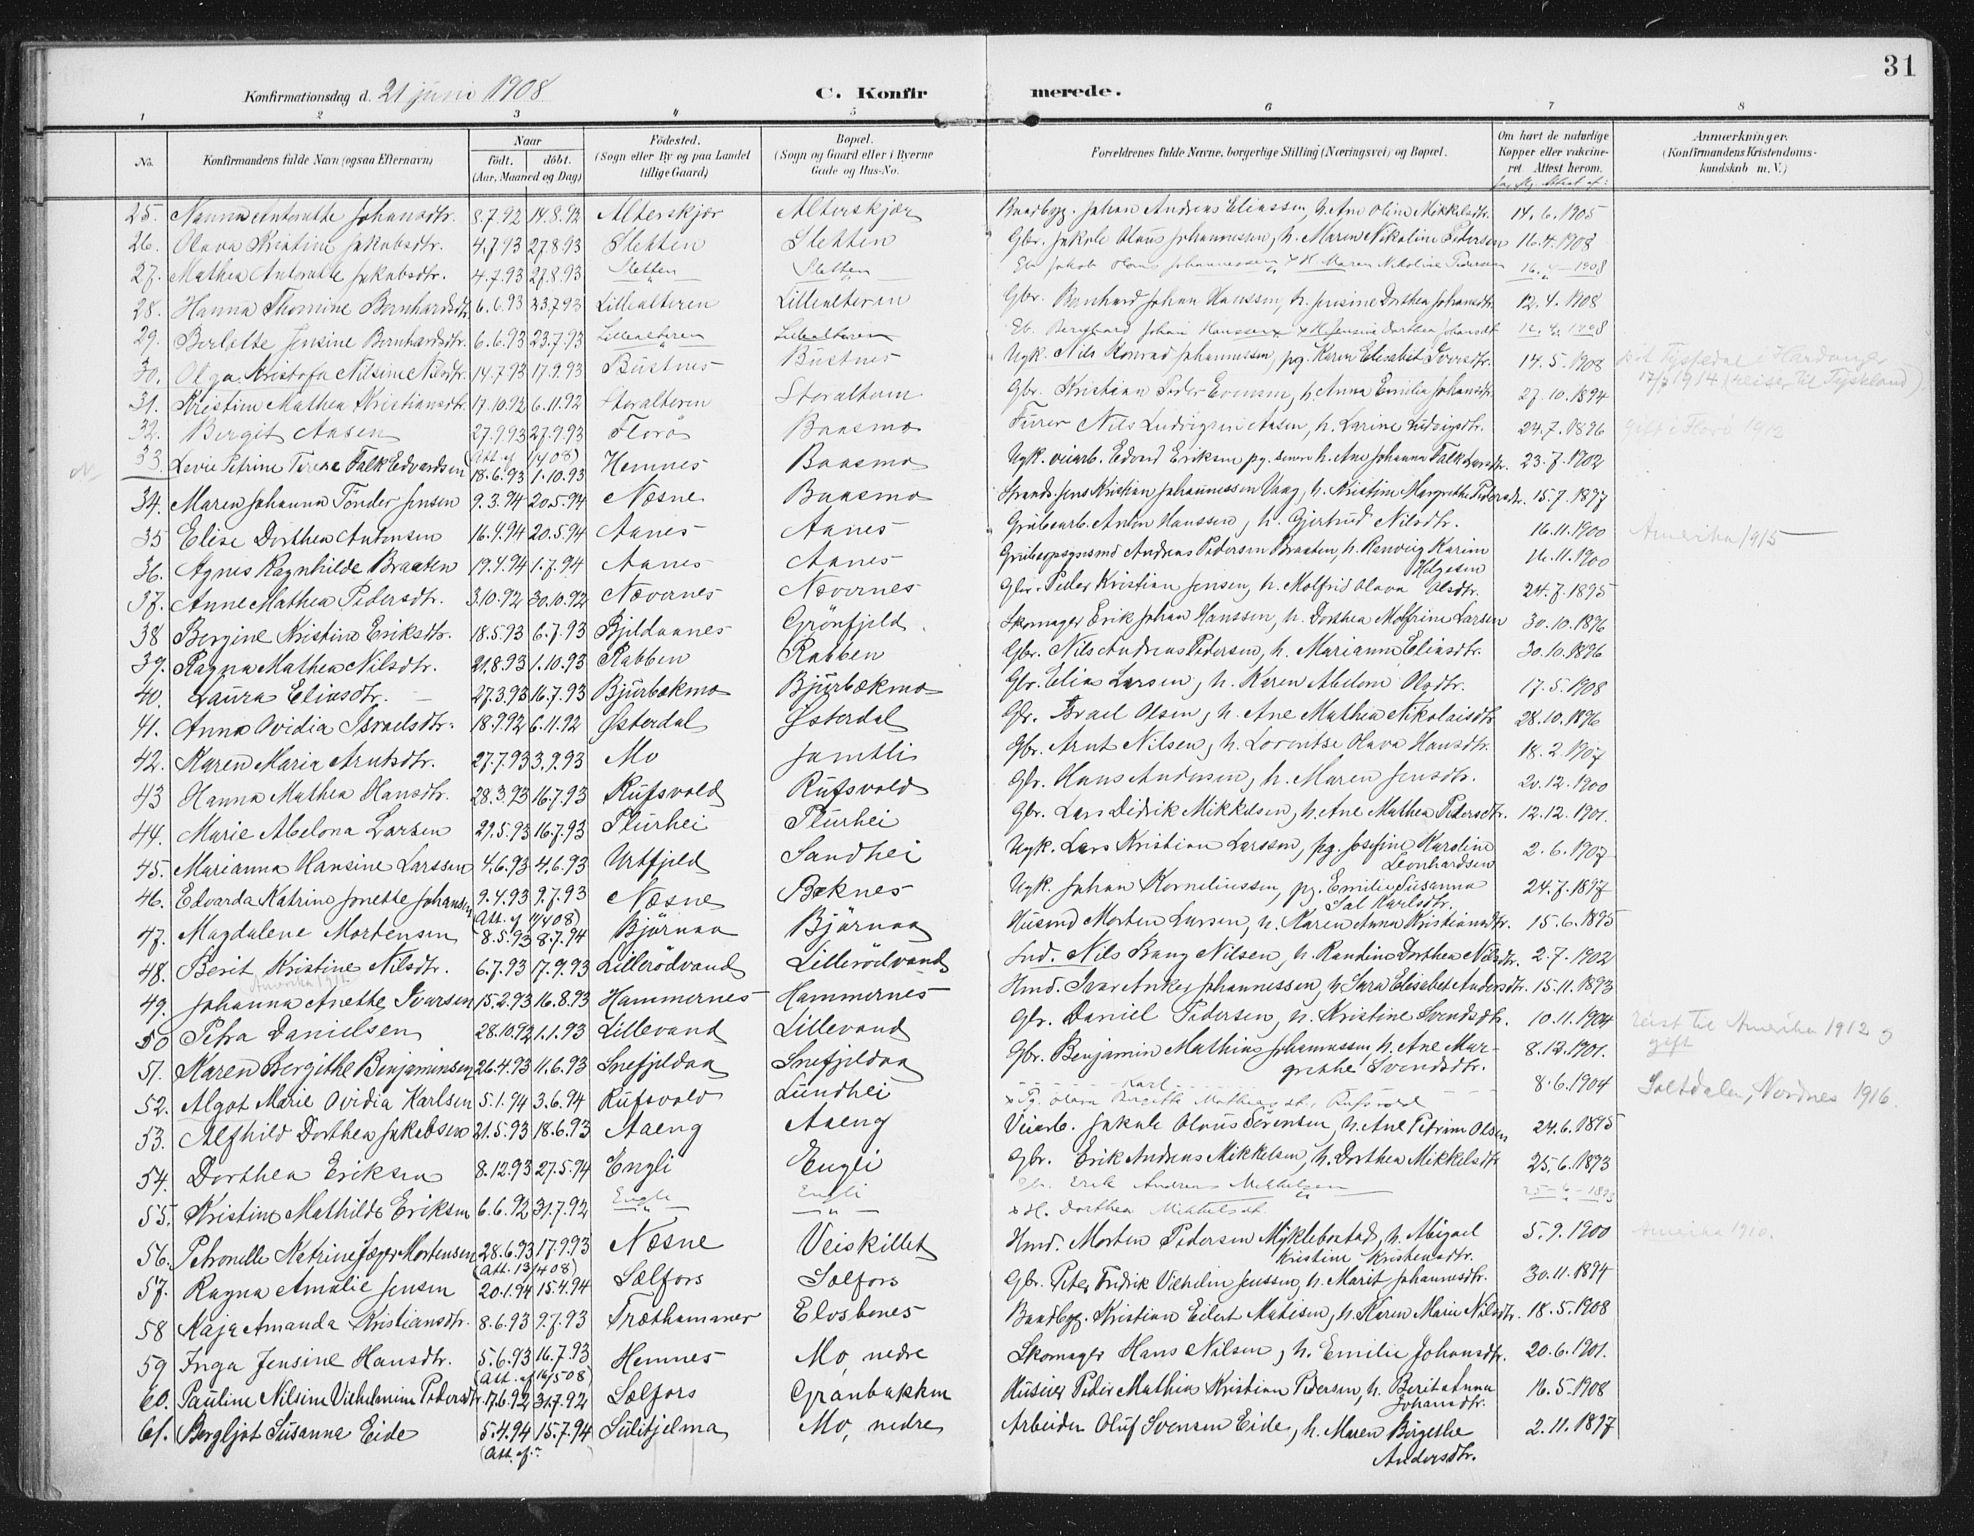 31
Konfirmationsdag d. 21 juni 1908
C. Konfirmerede.
1 2 3 4 5 6 7 8
No. Konfirmandens fulde Navn (ogsaa Efternavn) Naar født. døbt. (Aar, Maaned og Dag) Fødested. (Sogn eller By og paa Landet tillige Gaard) Bopæl. (Sogn og Gaard eller i Byerne Gade og Hus-No. Forældrenes fulde Navne, borgerlige Stilling (Næringsvei) og Bopæl. Om havt de naturlige Kopper eller vakcineret. Attest herom. Anmærkninger. (Konfirmandens Kristendomskundskab m. V.)
25. Nanna Antonette Johansdtr. 8.7.92 14.8.92 Alterskjær Alterskjær Baadbyg. Johan Andreas Eliassen, h. Ane Oline Mikkelsdtr. 14.6.1905
26. Olava Kristine Jakobsdtr. 4.7.93 27.8.93 Sletten Sletten Gbr. Jakob Olaus Johannessen, h. Maren Nikoline Pedersen 16.4.1908
27. Mathea Antonette Jakobsdtr. 4.7.93 27.8.93 Sletten Sletten Gb. Jakob Olaus Johannessen & H. Maren Nikoline Pedersen 16. 4 1908
28. Hanna Thomine Bernhardsdtr. 6.6.93 23.7.93 Lillealteren Lillealteren Gbr. Bernhard Johan Hanssen, h. Jensine Dorthea Johansdtr. 12.4.1908
29. Berlotte Jensine Bernhardsdtr. 6.6.93 23.7.93 Lillealteren Lillealteren Gb. Bernhard Johan Hanssen & H. Jensine Dorthea Johansdt. 12.4.1908
30. Olga Kristofa Nilsine Nilsdtr. 14.7.93 17.9.93 Bustnes Bustnes Ugk. Nils Konrad Johannessen, pg. Karen Elisabet Iversdtr. 14.5.1908 Tyssedal Hardanger 17/7 1914 (reiser til Tyskland)
31. Kristine Mathea Kristiansdtr. 17.10.92 6.11.92 Storalteren Storalteren Gbr. Kristian Peder Evensen, h. Anna Emilie Johansdtr. 27.10.1894
32. Bergit Aasen 27.9.93 27.9.93 Florø Baasmo Fører Nils Ludvigsen Aasen, h. Larine Ludvigsdtr. 24.7.1896 gift i Florø 1912
(Att. af 1/4 08)
33. Lovie Petrine Terese Falk Edvardsen 18.6.93 1.10.93 Hemnes Baasmo Ugk. veiarb. Edvard Eriksen pg. senere h. Ane Johanna Falk Larsdtr. 23.7.1902
34. Maren Johanna Tønder Jensen 9.3.94 20.5.94 Næsne Baasmo Strands. Jens Kristian Johannessen Vaag, h. Kristine Margrethe Pedersdtr. 15.7.1897
35 Elise Dorthea Antonsen 16.4.94 20.5.94 Aanes Aanes Grubearb. Anton Hanssen, h. Gjertrud Nilsdtr. 16.11.1900 Amerika 1915
36. Agnes Ragnhilde Braaten 19.4.94 1.7.94 Aanes Aanes Grubeopsynsmd Andreas Pedersen Braaten, h. Ranveig Karine Helgesen 16.11.1900
37. Anne Mathea Pedersdtr. 3.10.92 30.10.92 Nævernes Nævernes Gbr. Peder Kristian Jensen, h. Molfrid Olava Olsdtr. 24.7.1895
38 Bergine Kristine Eriksdtr. 18.5.93 6.7.93 Bjeldaanes Grønfjeld Skomager Erik Johan Hanssen, h. Dorthea Molfrine Larsen 30.10.1896
39. Ragna Mathea Nilsdtr. 21.8.93 1.10.93 Rabben Rabben Gbr. Nils Andreas Pedersen, h. Marianna Eliasdtr. 30.10.1896
40. Laura Eliasdtr. 27.3.93 16.7.93 Bjurbækmo Bjurbækmo Gbr. Elias Larsen, h. Karen Abelone Olsdtr. 17.5.1908
41. Anna Ovidia Israelsdtr. 18.9.92 6.11.92 Østerdal Østerdal Gbr. Israel Olsen, h. Ane Mathea Nikolaisdtr 28.10.1896
42. Karen Maria Arntsdtr. 27.7.93 3.9.93 Mo Jamtli Gbr. Arnt Nilsen, h. Lorentse Olava Hansdtr. 18.2.1907
43 Hanna Mathea Hansdtr. 28.3.93 16.7.93 Rufsvold Rufsvold Gbr. Hans Andersen, h. Maren Jensdtr. 20.12.1900
44. Marie Abelona Larsen 29.5.93 16.7.93 Plurhei Plurhei Gbr. Lars Didrik Mikkelsen, h. Ane Mathea Pedersdtr. 12.12.1901.
45. Marianna Hansine Larssen 4.6.93 4.6.93 Urtfjeld Sandhei Ugk. Lars Kristian Larssen, pg. Josefine Karoline Leonhardsen 2.6.1907
46. Edvarda Katrine Jonette Johansen 9.4.93 9.7.93 Næsne Bæknes Ugk. Johan Korneliussen, pg. Emilie Susanna Sal Karlsdtr. 24.7.1897
(Att. af 11/4 08)
47. Magdalene Mortensen 8.5.93 8.7.94 Bjørnaa Bjørnaa Husmd Morten Larsen, h. Karen Anna Kristiansdtr. 15.6.1895
48. Berit Kristine Nilsdtr. 6.7.93 17.9.93 Lillerødvand Lillerødvand Ind. Nils Bang Nilsen, h. Randine Dorthea Nilsdtr. 2.7.1902
Amerika 1912
49. Johanna Anette Iversen 15.2.93 16.8.93 Hammernes Hammernes Hmd. Ivar Anker Johannessen, h. Sara Elisabet Andersdtr. 15.11.1893
50 Petra Danielsen 28.10.92 1.1.93 Lillevand Lillevand Gbr. Daniel Pedersen, h. Kristine Svendsdtr. 10.11.1904 reist til Amerika 1912 og gift
51. Maren Bergithe Benjaminsen 26.4.93 11.6.93 Snefjeldaa Snefjeldaa Gbr. Benjamin Mathias Johannessen, h. Ane Margrethe Svendsdtr. 8.12.1901.
52. Algot Marie Ovidia Karlsen 5.1.94 3.6.94 Rufsvold Lundhei Karl & Pg. Olava Birgitte Mathiasdt., Rufsvold 8.6.1904 Saltdalen, Nordnes 1916.
53. Alfhild Dorthea Jakobsen 21.5.93 18.6.93 Aaeng Aaeng Veiarb. Jakob Olaus Sørensen, h. Ane Petrine Olsen 24.6.1895
54. Dorthea Eriksen 8.12.93 27.5.94 Engli Engli Gbr. Erik Andreas Mikkelsen, h. Dorthea Mikkelsdtr 25.6.1893
55. Kristine Mathilde Eriksen 6.6.92 31.7.92 Engli Engli Gb. Erik Andreas Mikkelsen & H. Dorthea Mikkelsdt. 25-6-1893
56. Petronelle Katrine Jæger Mortensen 28.6.93 17.9.93 Næsne Veiskillet Hmd. Morten Pedersen Myklebostad, h. Abigael Kristine Kristensdtr. 5.9.1900 Amerika 1910.
(Att. 13/4 08)
57. Ragna Amalie Jensen 20.1.94 15.4.94 Sælfors Sælfors Gbr. Peter Fredrik Vilhelm Jenssen, h. Marit Johannesdtr. 30.11.1894
58 Kaja Amanda Kristiansdtr. 8.6.93 9.7.93 Træthammer Elvsbenes Baadbyg. Kristian Eilert Matisen, h. Karen Marie Nilsdtr. 18.5.1908
59 Inga Jensine Hansdtr. 5.6.93 16.7.93 Hemnes Mo, nedre Skomager Hans Nilsen, h. Emilie Johansdtr. 20.6.1901.
(Att. af 16/5 08)
60. Pauline Nilsine Vilhelmine Pedersdtr. 17.6.92 31.7.92 Sælfors Grånbakken Huseier Peder Mathias Kristian Pedersen, h. Berit Anna Johansdtr. 16.5.1908
61. Bergljot Susanna Eide 5.4.94 15.7.94 Sulitjelma Mo, nedre Arbeider Oluf Svensen Eide, h. Maren Birgethe Andersdtr. 2.11.1897
(Att. af: